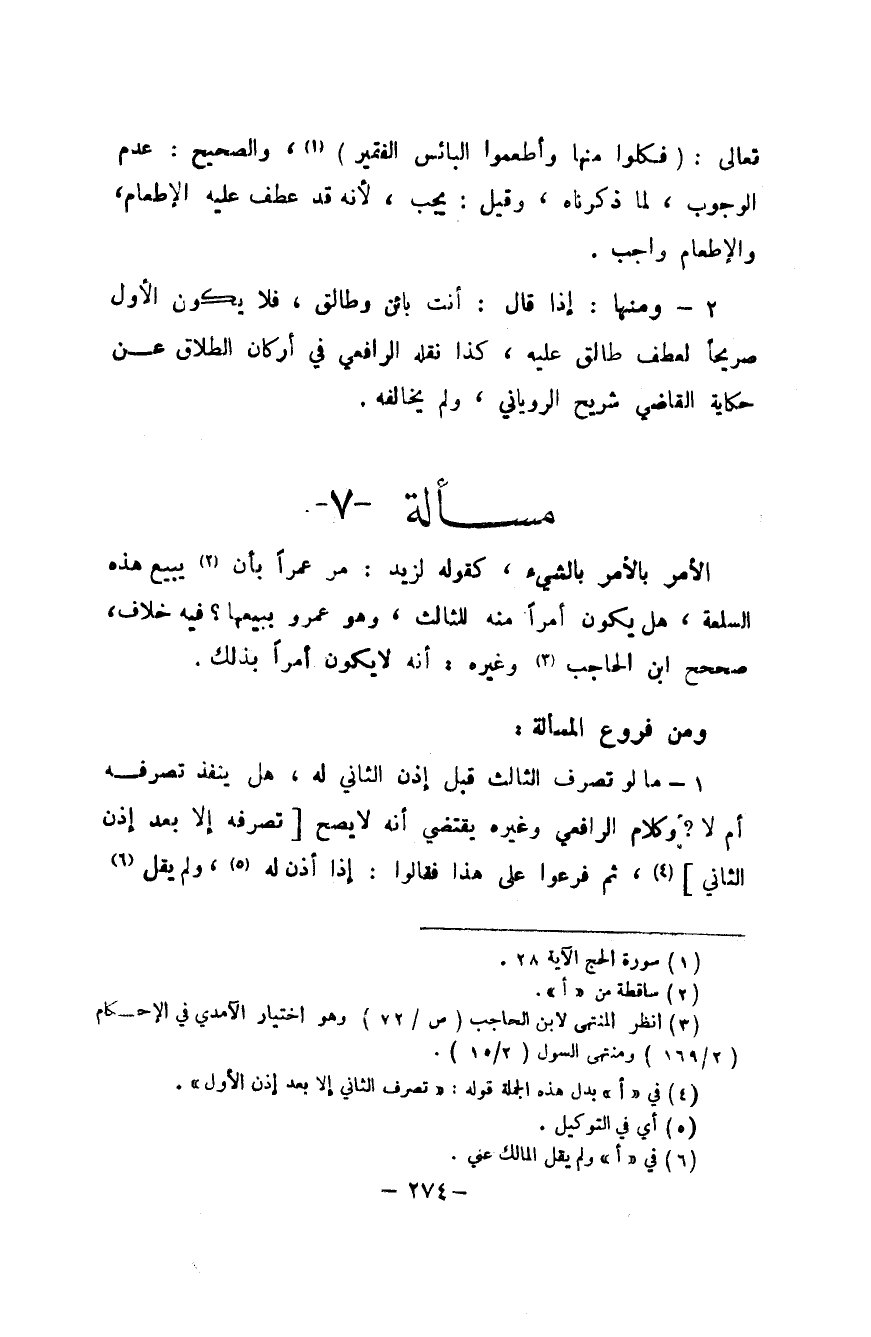 تعالى : ( فكلوا منها وأطعموا البائس الفقير ) (١) ، والصحيح : عدم
الوجوب ، لما ذكرناه ، وقيل : يجب ، لأنه قد عطف عليه الإطعام،
والإطعام واجب .
٢ – ومنها : إذا قال : أنت بائن وطالق ، فلا يكون الأول
صريحاً لعطف طالق عليه ، كذا نقله الرافعي في أركان الطلاق عن
حكاية القاضي شريح الروياني ، ولم يخالفه .
مسألة -٧-
الأمر بالأمر بالشيء ، كقوله لزيد : مر عمراً بأن (٢) يبيع هذه
السلعة ، هل يكون أمراً منه للثالث ، وهو عمرو ببيعها ؟ فيه خلاف،
صححح ابن الحاجب (٣) وغيره : أنه لايكون أمراً بذلك .
ومن فروع المسألة :
١ – ما لو تصرف الثالث قبل إذن الثاني له ، هل ينفذ تصرفه
أم لا ؟ وكلام الرافعي وغيره يقتضي أنه لايصح [ تصرفه إلا بعد إذن
الثاني ] (٤) ، ثم فرعوا على هذا فقالوا : إذا أذن له (٥) ، ولم يقل (٦)
(١) سورة الحج الآية ٢٨ .
(٢) ساقطة من « أ » .
(٣) انظر المنتهى لابن الحاجب ( ص / ٧٢ ) وهو اختيار الآمدي في الإحكام
( ١٦٩/٢ ) ومنتهى السول ( ١٥/٢ ) .
(٤) في « أ » بدل هذه الجملة قوله : « تصرف الثاني إلا بعد إذن الأول » .
(٥) أي في التوكيل .
(٦) في « أ » ولم يقل المالك عني .
– ٢٧٤ –